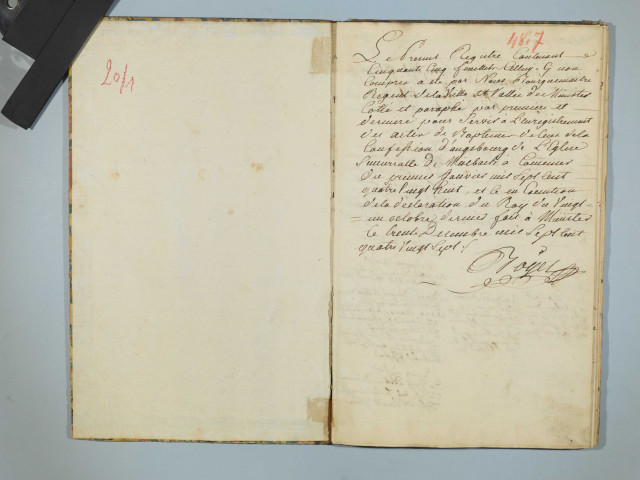 20/1
4E7
Le Present Registre Contenant
Cinquante Cinq feuillets Celluy Cy non
Compris a été par Nous Bourguemaistre
Regent de la Ville et Vallée de Munster
Cotté et paraphé par premiere et
derniere pour servir à L'enregistrement
des actes de Baptemes de Ceux de la
Confession D'augsbourg de L'Eglise
Succursalle De Muhlbach à Commencer
Du premier Janvier mil Sept Cent
quatre Vingt huit, et ce en Execution
de la déclaration du Roy du Vingt
un octobre dernier fait à Munster
le trente Decembre mil Sept Cent
quatre Vingt Sept /.